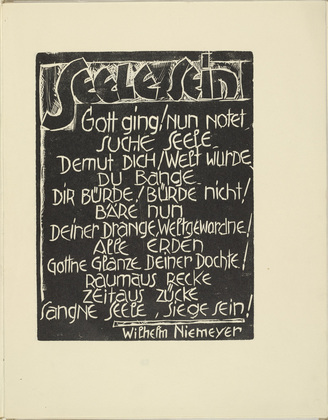 SEELE SEIN
Gott ging! Nun notet
SUCHE SEELE
Demut Dich/Welt wurde
DU BANGE
DIR BÜRDE! BÜRDE nicht!
BÄRE nun
Deiner Drange, Weltgewordne!
ALLE ERDEN
Gotthe Glänze Deiner Dochte!
RAUMAUS RECKE
ZEITAUS ZÜCKE
Sangne SEELE, SIEGE SEIN!
Wilhelm Niemeyer